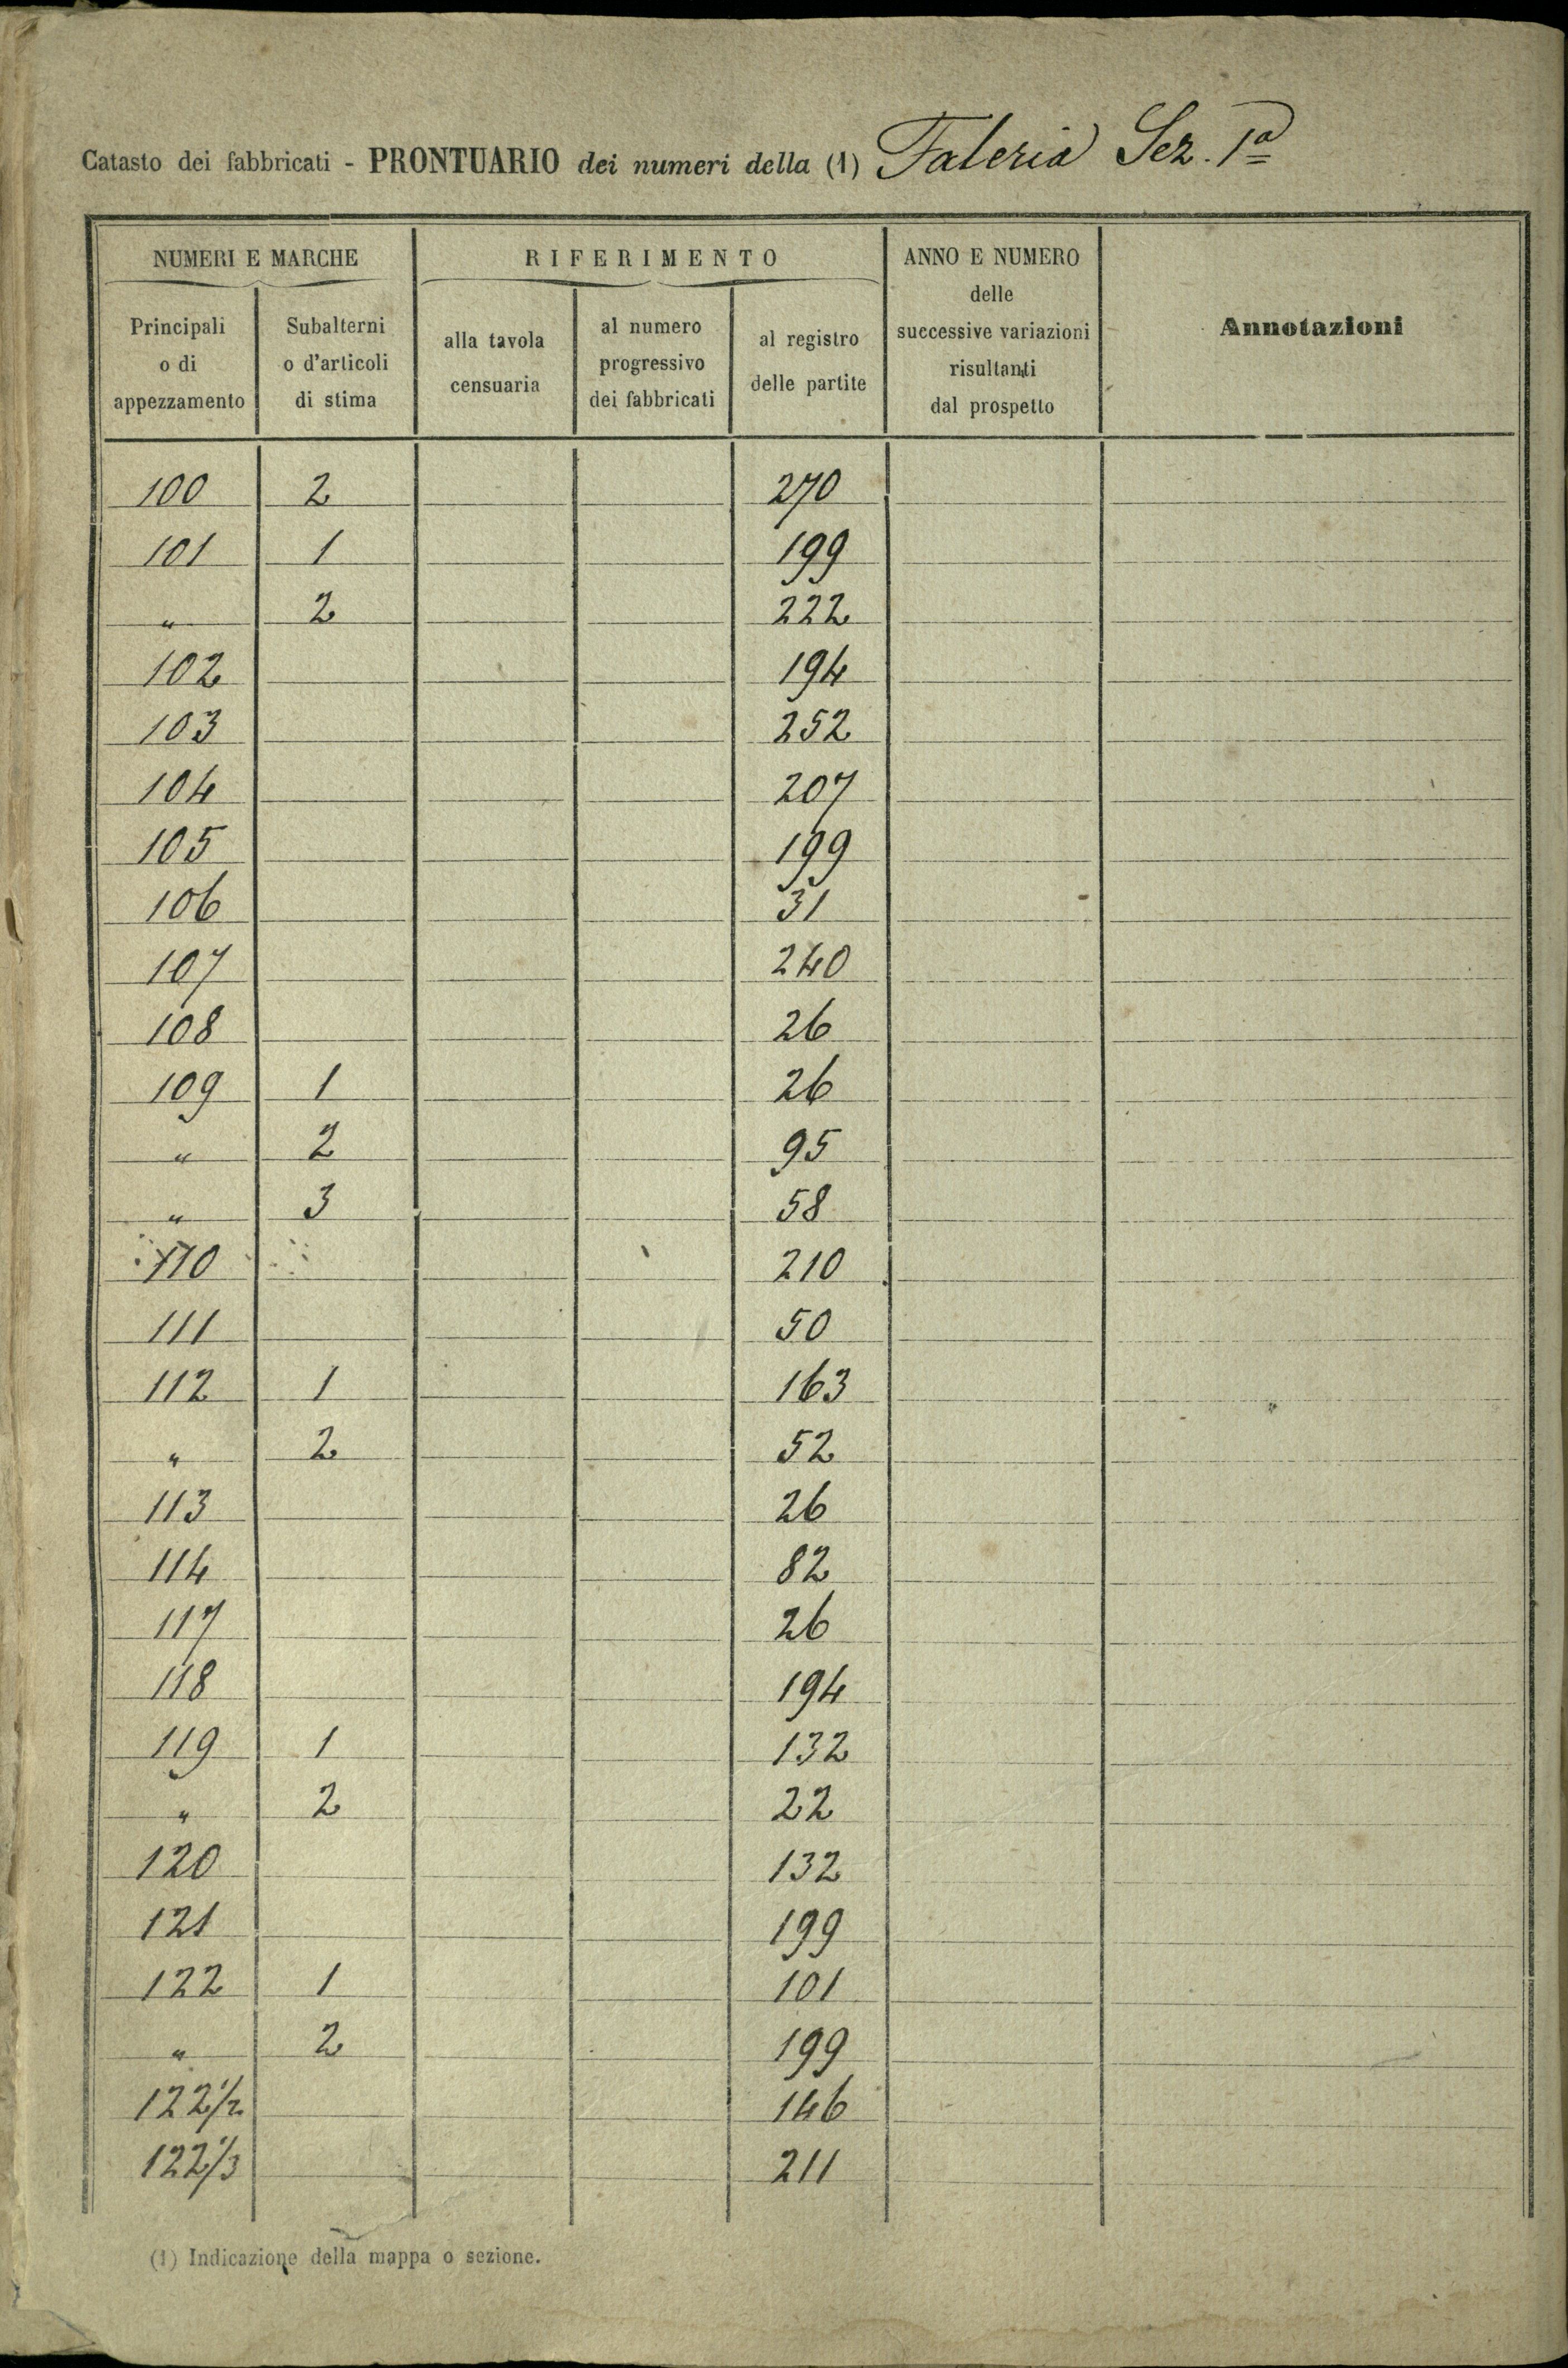 Catasto dei fabbricati - PRONTUARIO dei numeri della (1) Faleria Sez. 1ª
NUMERI E MARCHE RIFERIMENTO ANNO E NUMERO delle successive variazioni risultanti dal prospetto Annotazioni
Principali o di appezzamento Subalterni o d'articoli di stima alla tavola censuaria al numero progressivo dei fabbricati al registro delle partite
100 2 270
101 1 199
" 2 222
102 194
103 252
104 207
105 199
106 31
107 240
108 26
109 1 26
" 2 95
" 3 58
110 210
111 50
112 1 163
" 2 52
113 26
114 82
117 26
118 194
119 1 132
" 2 22
120 132
121 199
122 1 101
" 2 199
122 1/2 146
122 1/3 211
(1) Indicazione della mappa o sezione.